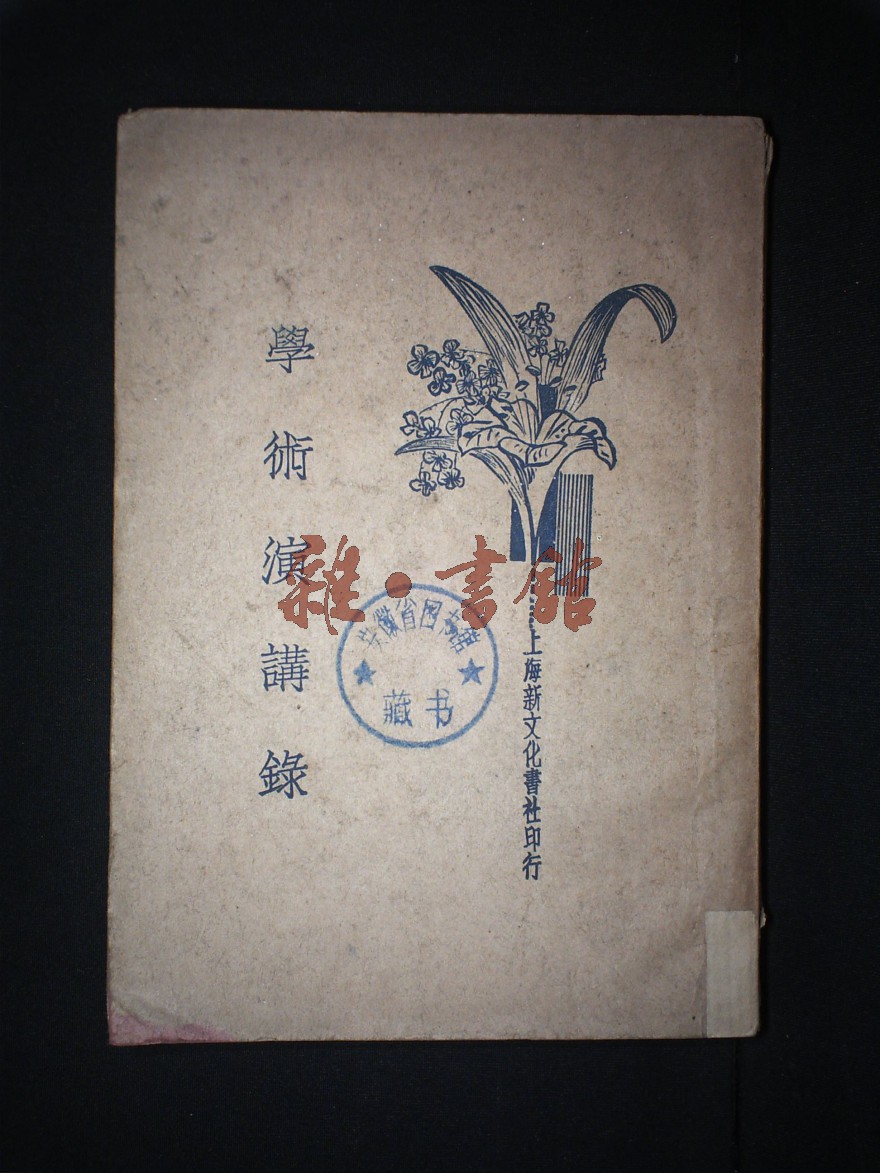 學術演講錄
上海新文化書社印行
雜·書館
安徽省图书馆
藏书